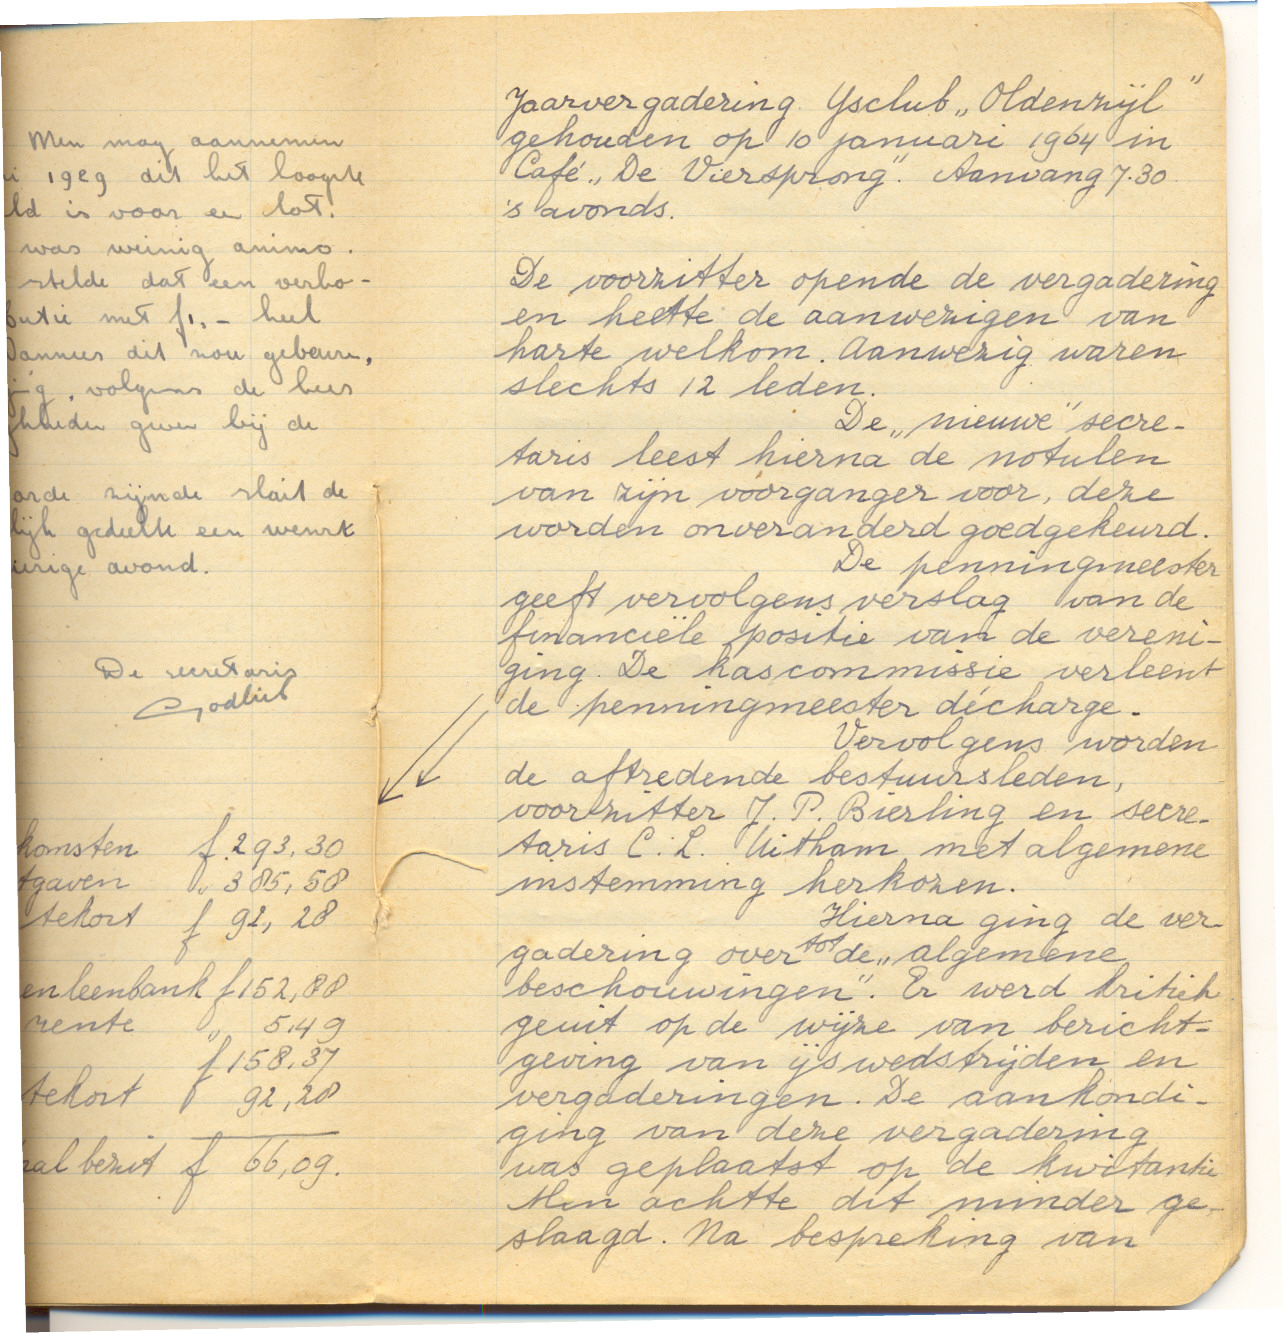 Men mag aannemen
1929 dit het laagste
ld is voor een lot.
was weinig animo.
stelde dat een verho-
butie met f1,- heel
Wanneer dit zou gebeuren,
volgens de heer
gheden geven bij de
orde zijnde sluit de
lijk gedeelte een wenst
ierige avond.
De secretaris
Godlieb
komsten f. 293,30
tgaven „ 385,58
tekort f 92,28
enleenbank f 152,88
rente „ 5.49
f 158.37
tekort 92,28
aal bezit f 66,09.
Jaarvergadering Ysclub „Oldenzijl"
gehouden op 10 januari 1964 in
Café „De Viersprong". Aanvang 7.30
's avonds.
De voorzitter opende de vergadering
en heette de aanwezigen van
harte welkom. Aanwezig waren
slechts 12 leden.
De „nieuwe" secre-
taris leest hierna de notulen
van zijn voorganger voor, deze
worden onveranderd goedgekeurd.
De penningmeester
geeft vervolgens verslag van de
financiële positie van de vereni-
ging. De kascommissie verleent
de penningmeester décharge.
Vervolgens worden
de aftredende bestuursleden,
voorzitter J. P. Bierling en secre-
taris C. L. Uitham met algemene
instemming herkozen.
Hierna ging de ver-
gadering over tot de „algemene
beschouwingen". Er werd kritiek
geuit op de wijze van bericht-
geving van ijswedstrijden en
vergaderingen. De aankondi-
ging van deze vergadering
was geplaatst op de kwitantie
Men achtte dit minder ge-
slaagd. Na bespreking van